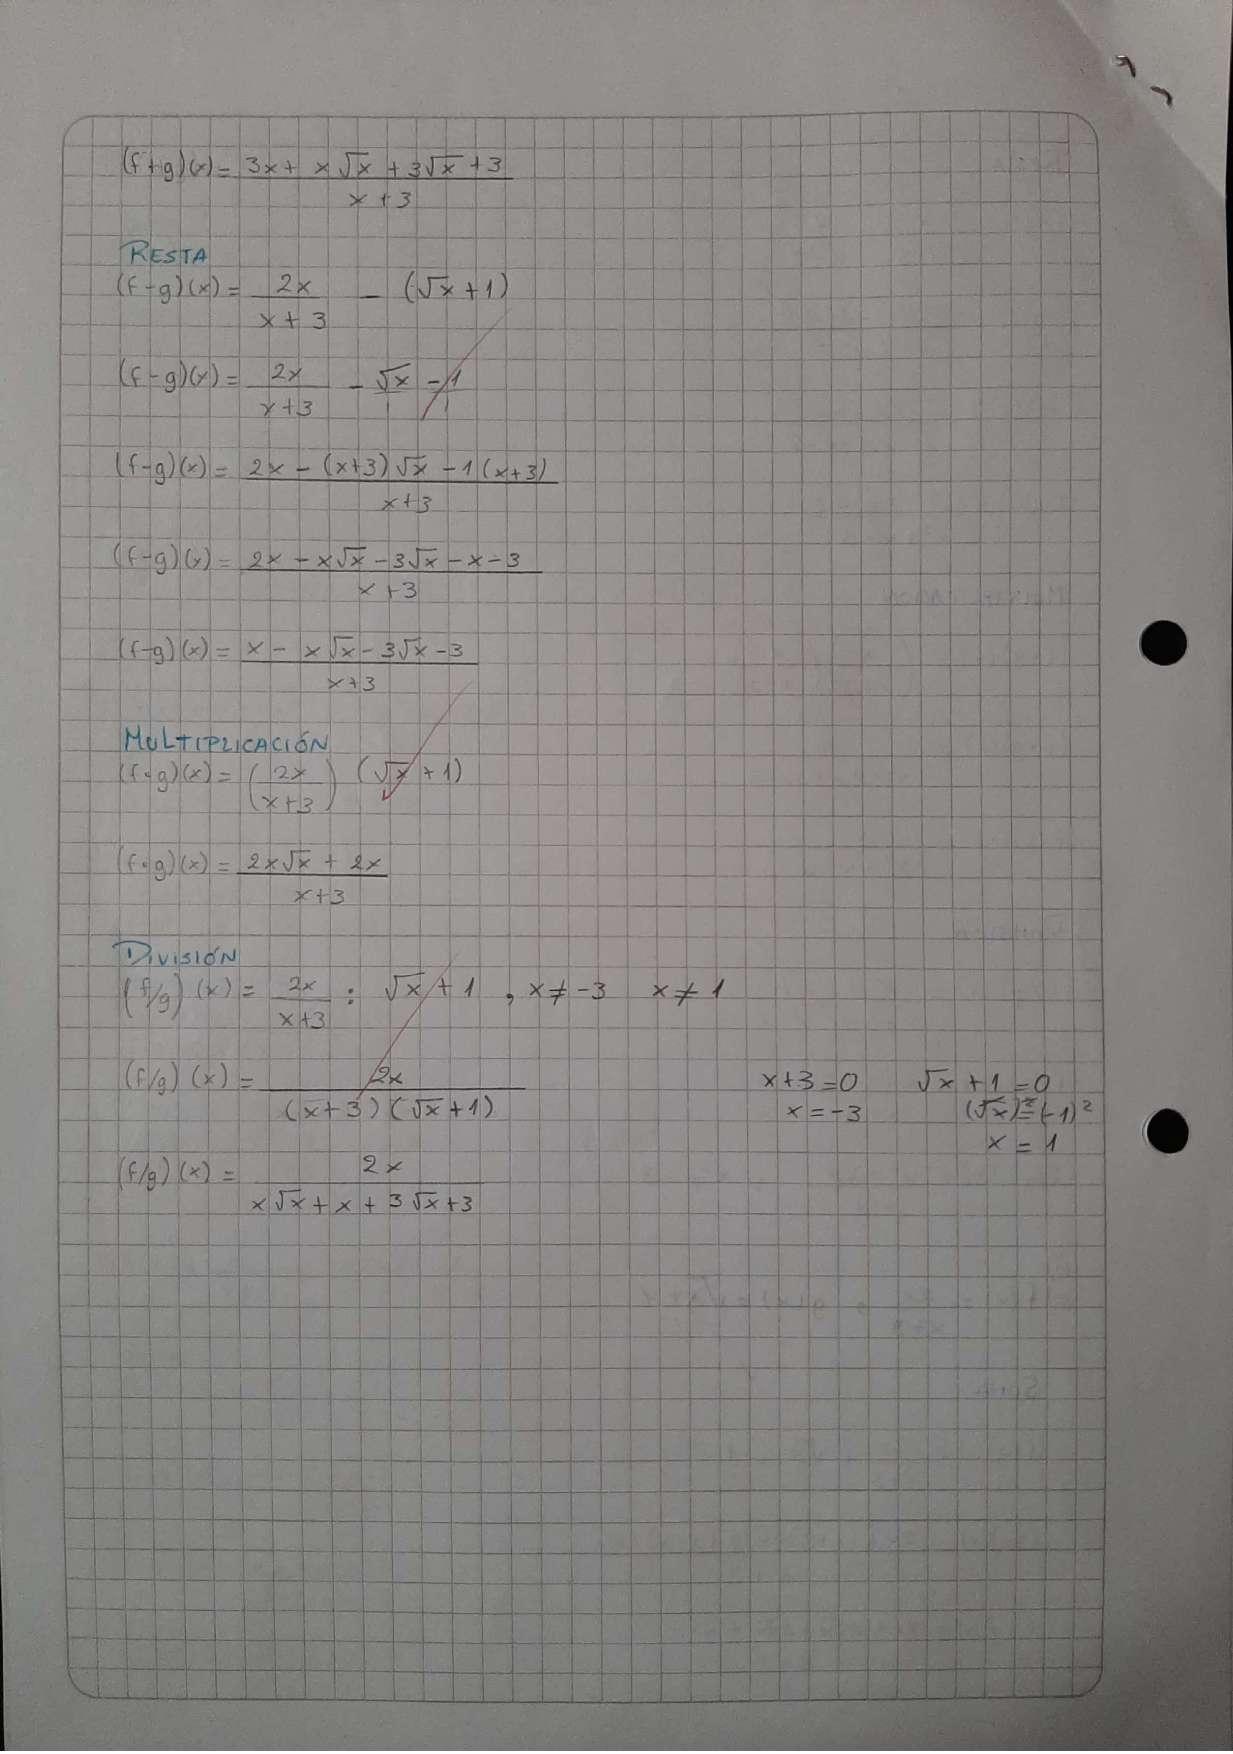 (f+g)(x) = 3x + x√x + 3√x + 3 / x + 3
RESTA
(f-g)(x) = 2x / x + 3 - (√x + 1)
(f-g)(x) = 2x / x+3 - √x - 1
(f-g)(x) = 2x - (x+3)√x - 1(x+3) / x+3
(f-g)(x) = 2x - x√x - 3√x - x - 3 / x + 3
(f-g)(x) = x - x√x - 3√x - 3 / x+3
MULTIPLICACIÓN
(f·g)(x) = (2x / x+3) (√x + 1)
(f·g)(x) = 2x√x + 2x / x+3
DIVISIÓN
(f/g)(x) = 2x / x+3 : √x + 1 , x ≠ -3 x ≠ 1
(f/g)(x) = 2x / (x+3)(√x+1)
x+3 = 0 √x + 1 = 0
x = -3 (√x)² = (-1)²
x = 1
(f/g)(x) = 2x / x√x + x + 3√x + 3